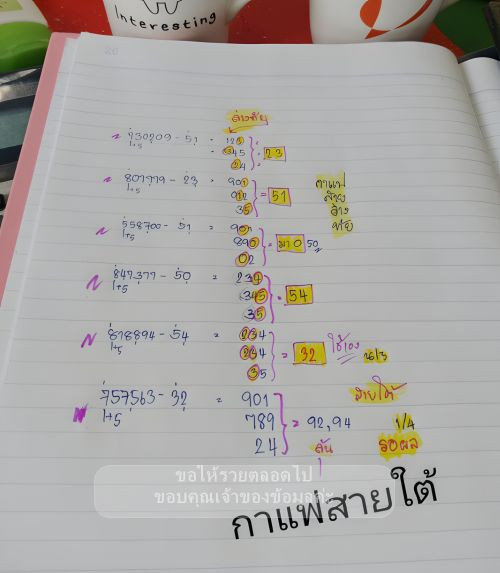 Interesting
20
ล่างชัย
730209 - 51 = 123
1+5 345 = 23
24
801779 - 23 = 901
1+5 012 = 51
35
กาแฟ
558700 - 51 = 901
1+5 890 = มา 0 50
02
847377 - 50 = 234
1+5 345 = 54
35
N 878894 - 54 = 234
1+5 234 = 32 ใช้เอง
35
สายใต้
757563 - 32 = 901
1+5 789 = 92,94 1/4
24 ลุ้น รอผล
ขอให้รวยตลอดไป
ขอบคุณเจ้าของข้อมูลค่ะ
กาแฟสายใต้